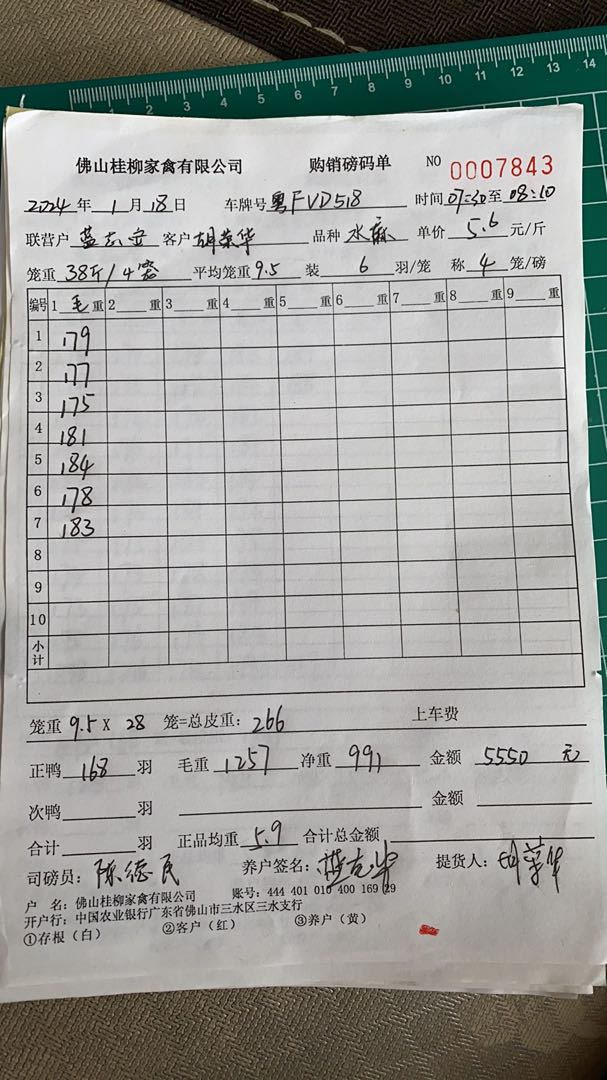 佛山桂柳家禽有限公司 购销磅码单 NO 0007843
2024年1月18日 车牌号粤FVD518 时间07:30至08:10
联营户 客户胡荣华 品种水麻 单价5.6元/斤
笼重38斤/4笼 平均笼重9.5 装6羽/笼 称4笼/磅
编号 1毛重 2重 3重 4重 5重 6重 7重 8重 9重
1 179
2 177
3 175
4 181
5 184
6 178
7 183
8
9
10
小计
笼重9.5X28笼=总皮重:266 上车费
正鸭168羽 毛重1257 净重991 金额5550元
次鸭羽 金额
合计羽 正品均重5.9 合计总金额
司磅员:陈德民 养户签名: 提货人:胡荣华
户 名:佛山桂柳家禽有限公司 账号:444 401 010 400 169 29
开户行:中国农业银行广东省佛山市三水区三水支行
①存根(白) ②客户(红) ③养户(黄)